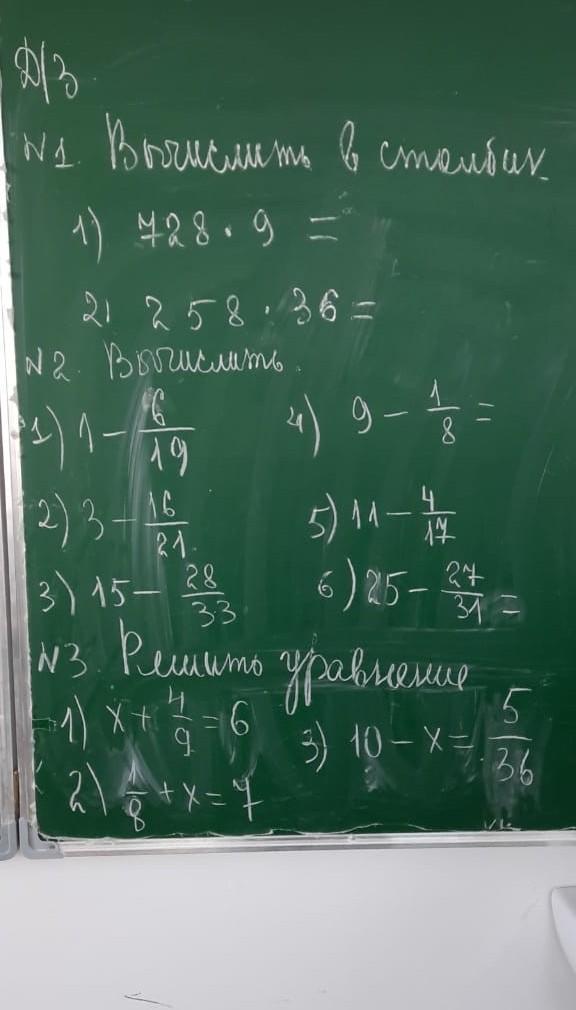 Д/З
N1. Вычислить в столбик.
1) 728 · 9 =
2) 258 · 36 =
N2. Вычислить.
1) 1 - 6/19 4) 9 - 1/8 =
2) 3 - 16/21 5) 11 - 4/17
3) 15 - 28/33 6) 25 - 27/31 =
N3. Решить уравнение
1) x + 4/9 = 6 3) 10 - x = 5/36
2) 1/8 + x = 7